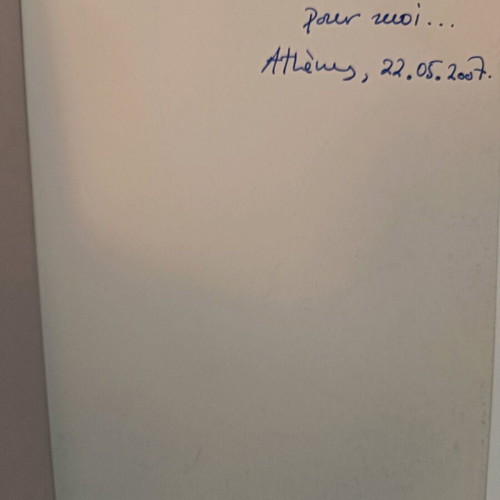 pour moi...
Athènes, 22.05.2007.